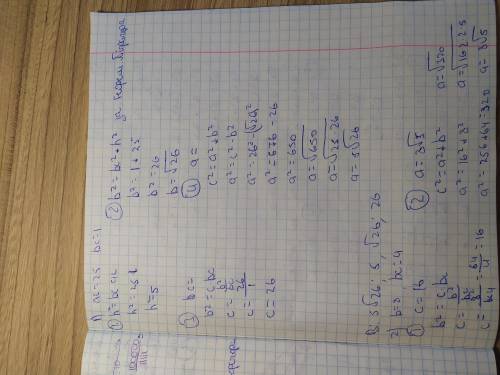 1) ac=25 bc=1
① h²=bc·ac
h²=25·1
h=5
② b²=bc²+h² за теорем. Піфагора
b²=1+25
b²=26
b=√26
③ bc=
b²=c·bc
c=b²/bc
c=26/1
c=26
④ a=
c²=a²+b²
a²=c²-b²
a²=26²-(√26)²
a²=676-26
a²=650
a=√650
a=√25·26
a=5√26
В: 5√26; 5; √26; 26
2) b=8 bc=4
① c=16
b²=c·bc
c=b²/bc
c=64/4=16
② a=8√5
c²=a²+b²
a²=16²+8²
a²=256+64=320
a=√320
a=√16·2·2·5
a=8√5